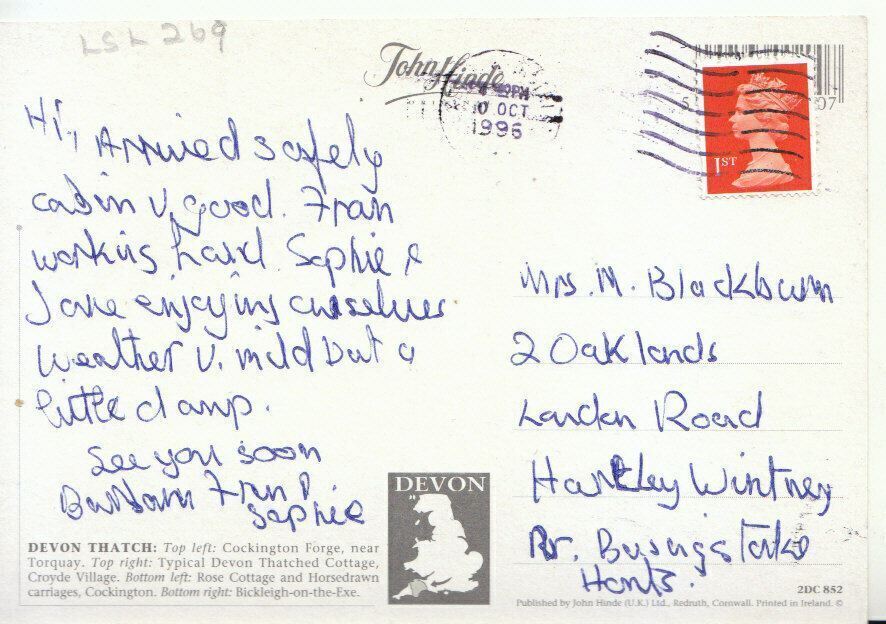 LSL 269
John Hinde
10 OCT
1996
5
07
1ST
Hi, Arrived safely
cabin v. good. Fran
working hard. Sophie &
Jane enjoying ourselves
Weather v. mild but a
little damp.
See you soon
Barbara Fran &
Sophie
Mrs. M. Blackburn
2 Oaklands
London Road
Hartley Wintney
Nr. Basingstoke
Hants.
DEVON
DEVON THATCH: Top left: Cockington Forge, near
Torquay. Top right: Typical Devon Thatched Cottage,
Croyde Village. Bottom left: Rose Cottage and Horsedrawn
carriages, Cockington. Bottom right: Bickleigh-on-the-Exe.
2DC 852
Published by John Hinde (U.K.) Ltd., Redruth, Cornwall. Printed in Ireland. ©